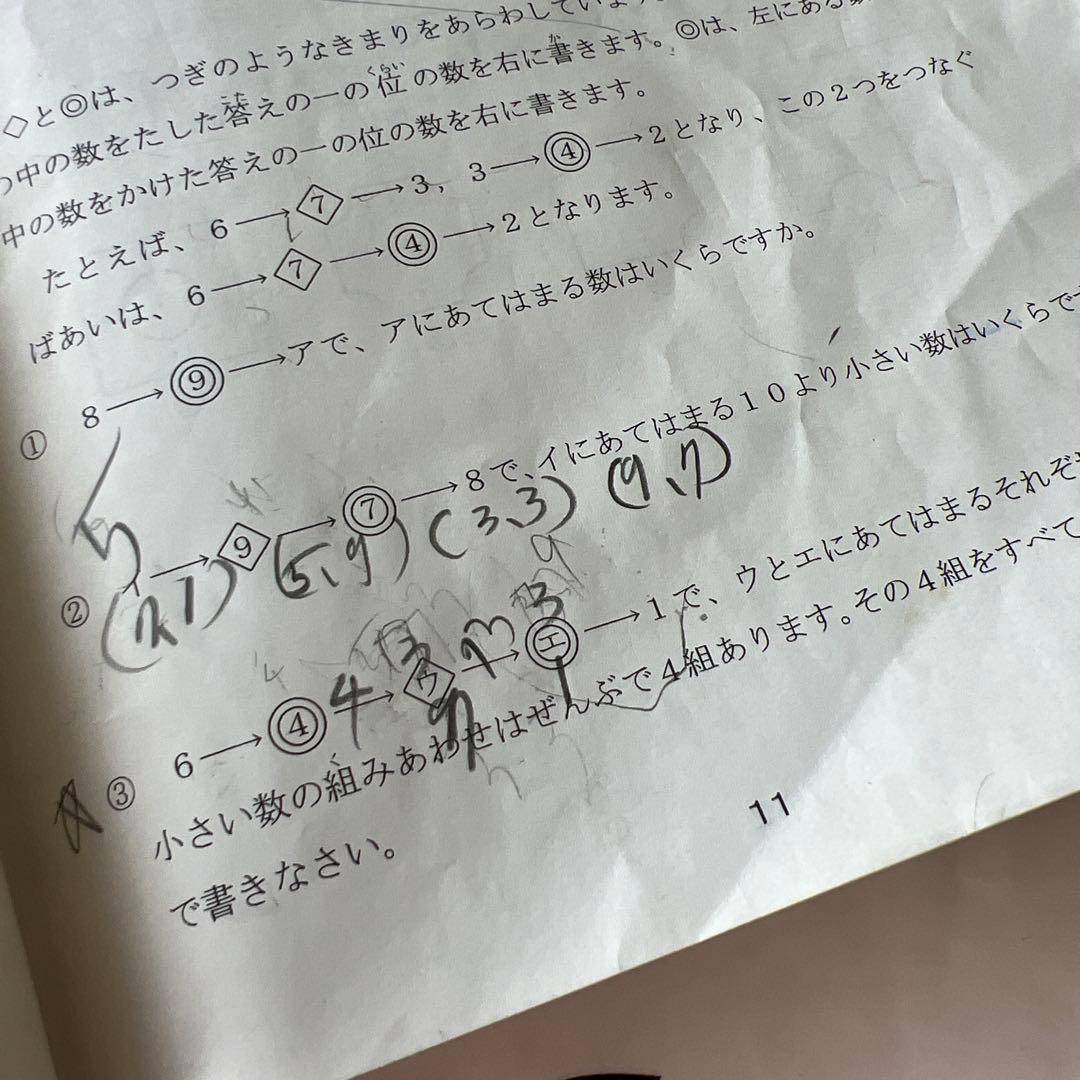 ◇と◎は、つぎのようなきまりをあらわしています
中の数をたした答えの一の位の数を右に書きます。◎は、左にある数
中の数をかけた答えの一の位の数を右に書きます。
たとえば、6→7→3,3→4→2となり、この2つをつなぐ
ばあいは、6→7→4→2となります。
① 8→9→アで、アにあてはまる数はいくらですか。
② イ→9→7→8で、イにあてはまる10より小さい数はいくらで
5
(2,1) (5、9) (3、3) (9、7)
③ 6→4→ウ→エ→1で、ウとエにあてはまるそれぞ
4 3 9 3
小さい数の組みあわせはぜんぶで4組あります。その4組をすべて
で書きなさい。
11